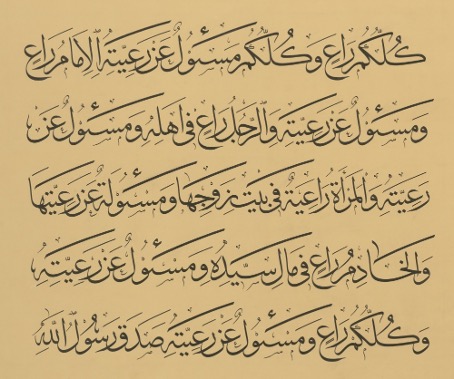 كُلُّكُمْ رَاعٍ وَكُلُّكُمْ مَسْئُولٌ عَنْ رَعِيَّتِهِ الْإِمَامُ رَاعٍ
وَمَسْئُولٌ عَنْ رَعِيَّتِهِ وَالرَّجُلُ رَاعٍ فِي أَهْلِهِ وَمَسْئُولٌ عَنْ
رَعِيَّتِهِ وَالْمَرْأَةُ رَاعِيَةٌ فِي بَيْتِ زَوْجِهَا وَمَسْئُولَةٌ عَنْ رَعِيَّتِهَا
وَالْخَادِمُ رَاعٍ فِي مَالِ سَيِّدِهِ وَمَسْئُولٌ عَنْ رَعِيَّتِهِ
وَكُلُّكُمْ رَاعٍ وَمَسْئُولٌ عَنْ رَعِيَّتِهِ صَدَقَ رَسُولُ اللهِ